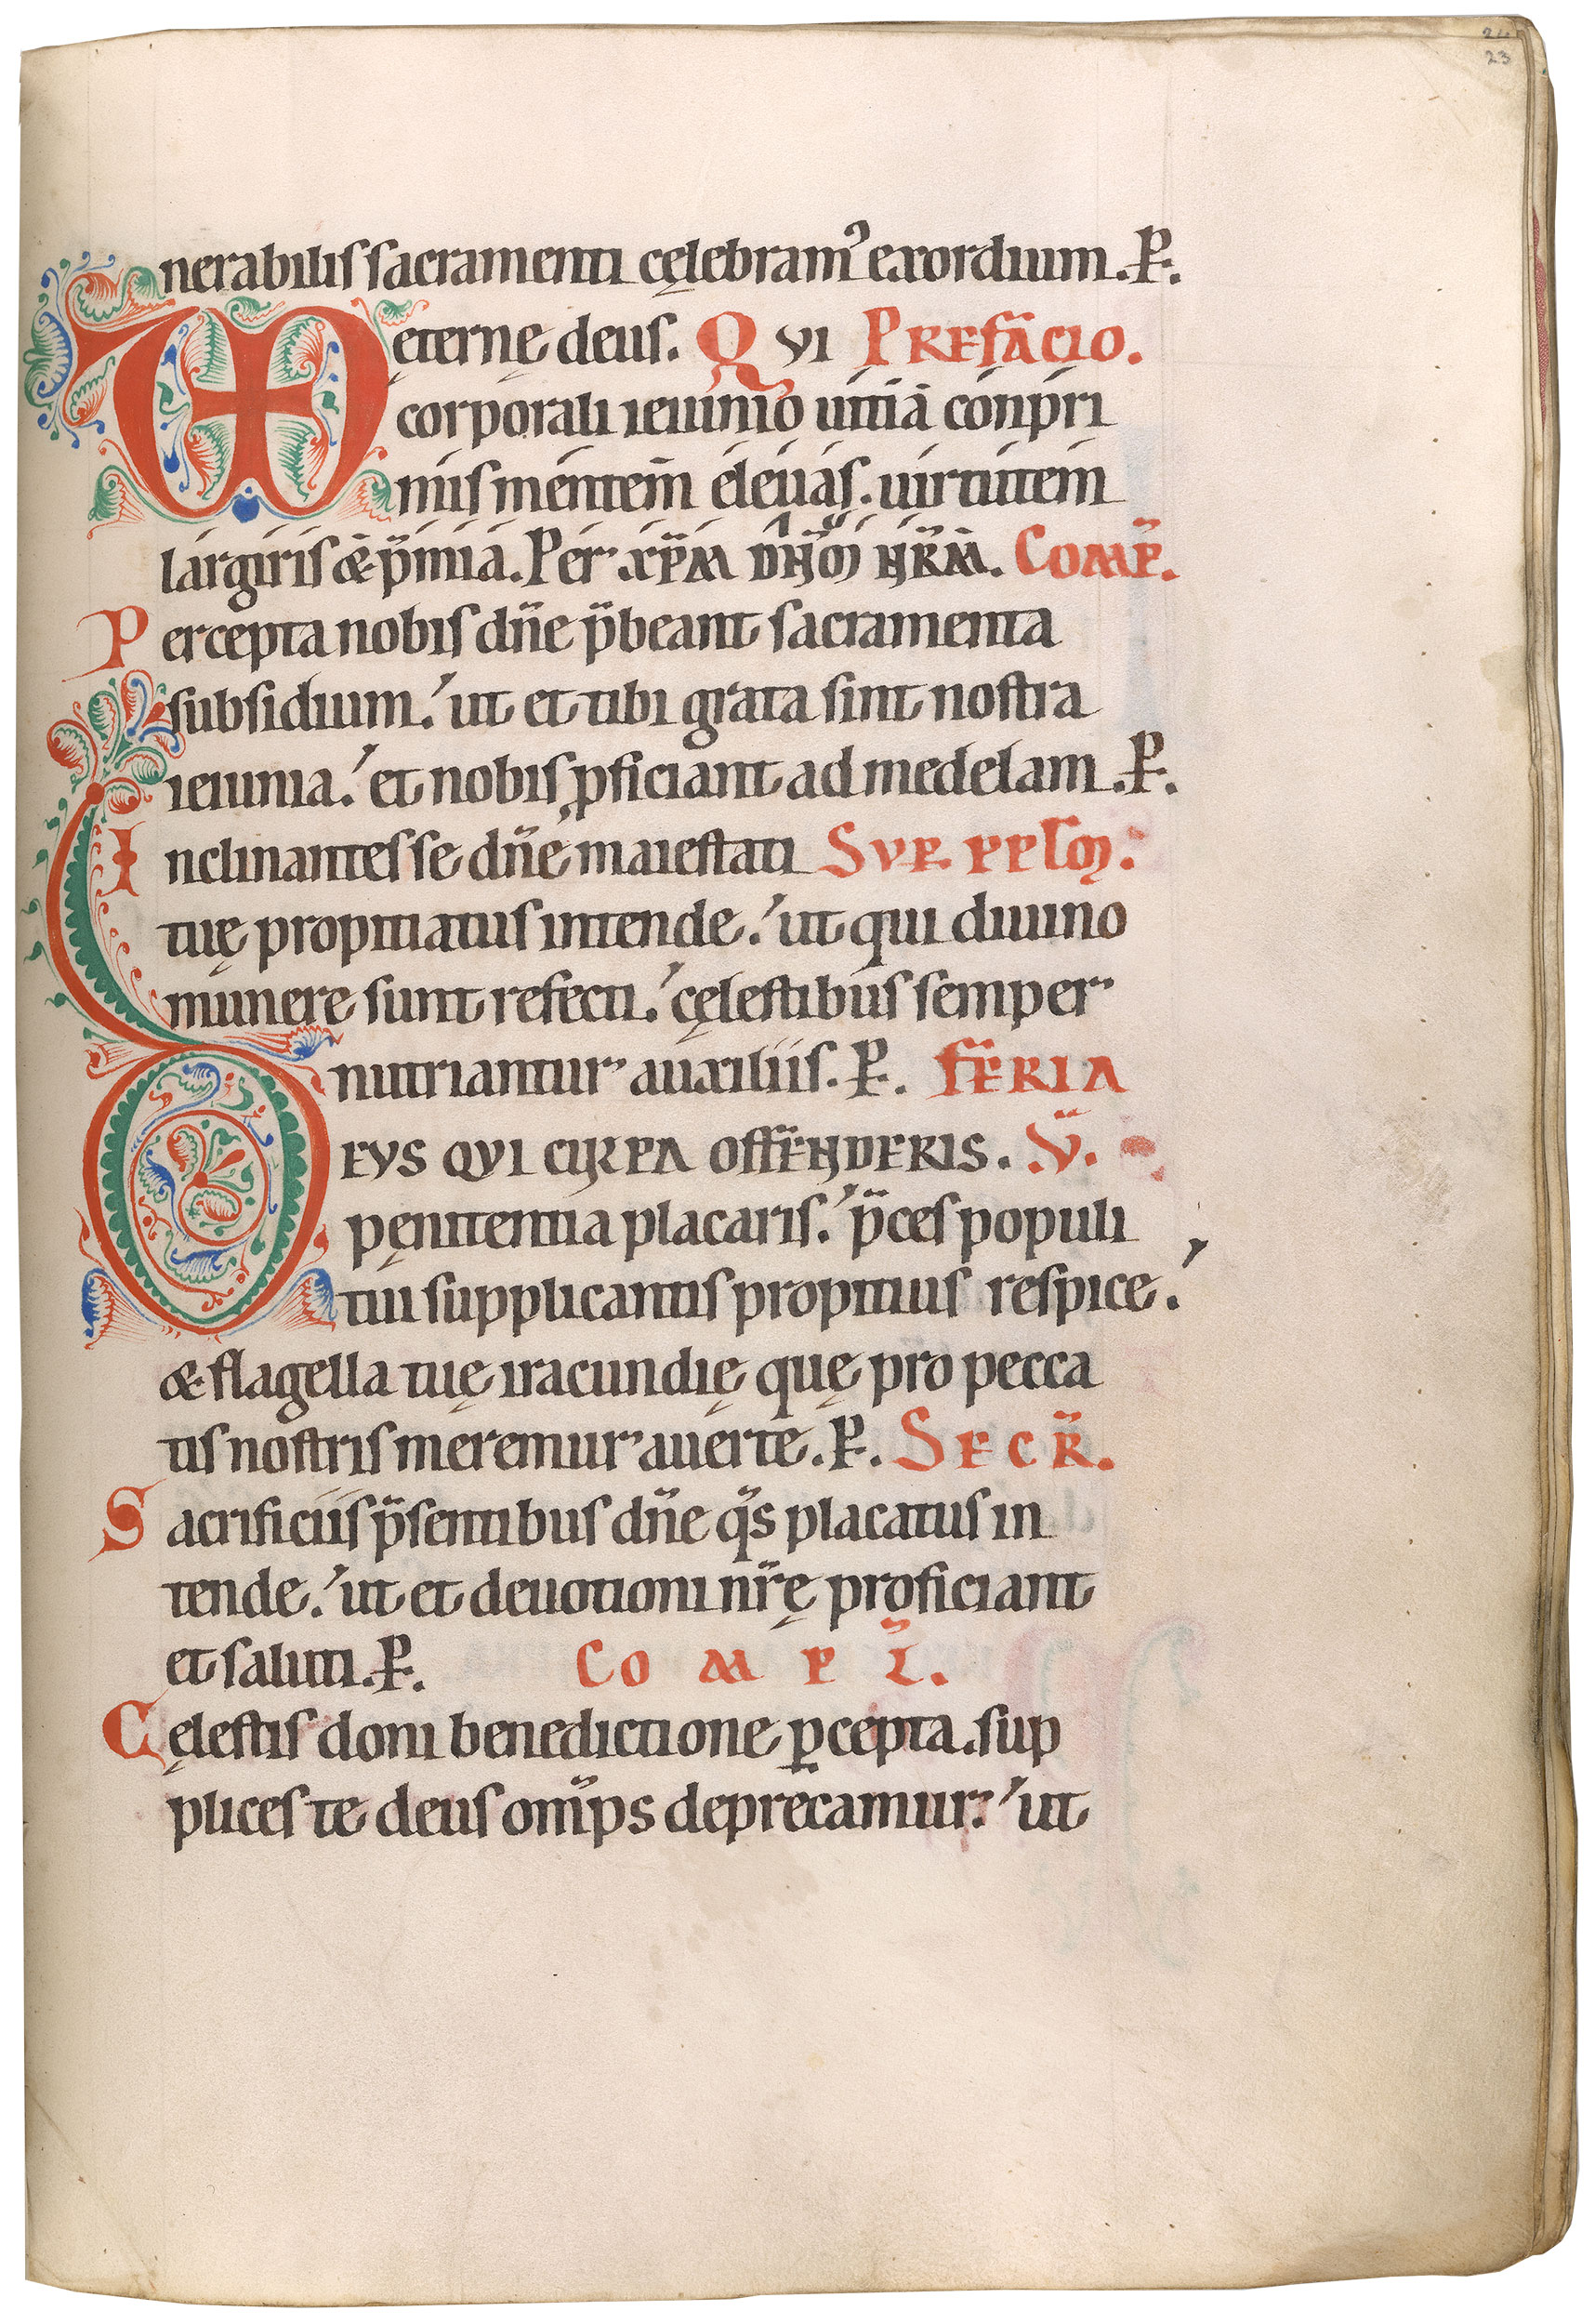 24
23
nerabilis sacramenti cęlebram᾿ exordium. P.
VD ęternę deus. QVI PREFACIO.
corporali ieiunio uitiā conpri
mis mentem eleuas. uirtutem
largiris & p̄mia. Per xp̄m dn̄m nr̄m. COMP.
Percepta nobis dn̄e p̄beant sacramenta
subsidium. ut et tibi grata sint nostra
ieiunia. et nobis ꝓficiant ad medelam. P.
Inclinantes se dn̄e maiestati SVP. PPLM.
tuę propitiatus intende. ut qui diuino
munere sunt refecti. cęlestibus semper
nutriantur auxiliis. P. FERIA
DEVS QVI CVLPA OFFENDERIS. V.
pęnitentia placaris. p̄ces populi
tui supplicantis propitius respice.
& flagella tuę iracundię quę pro pecca
tis nostris meremur auerte. P. SECR̄.
Sacrificiis p̄sentibus dn̄e q̄s placatus in
tende. ut et deuotioni nr̄ę proficiant
et saluti. P. COMPL̄.
Cęlestis doni benedictione ꝑcepta. sup
plices te deus om̄ps deprecamur. ut